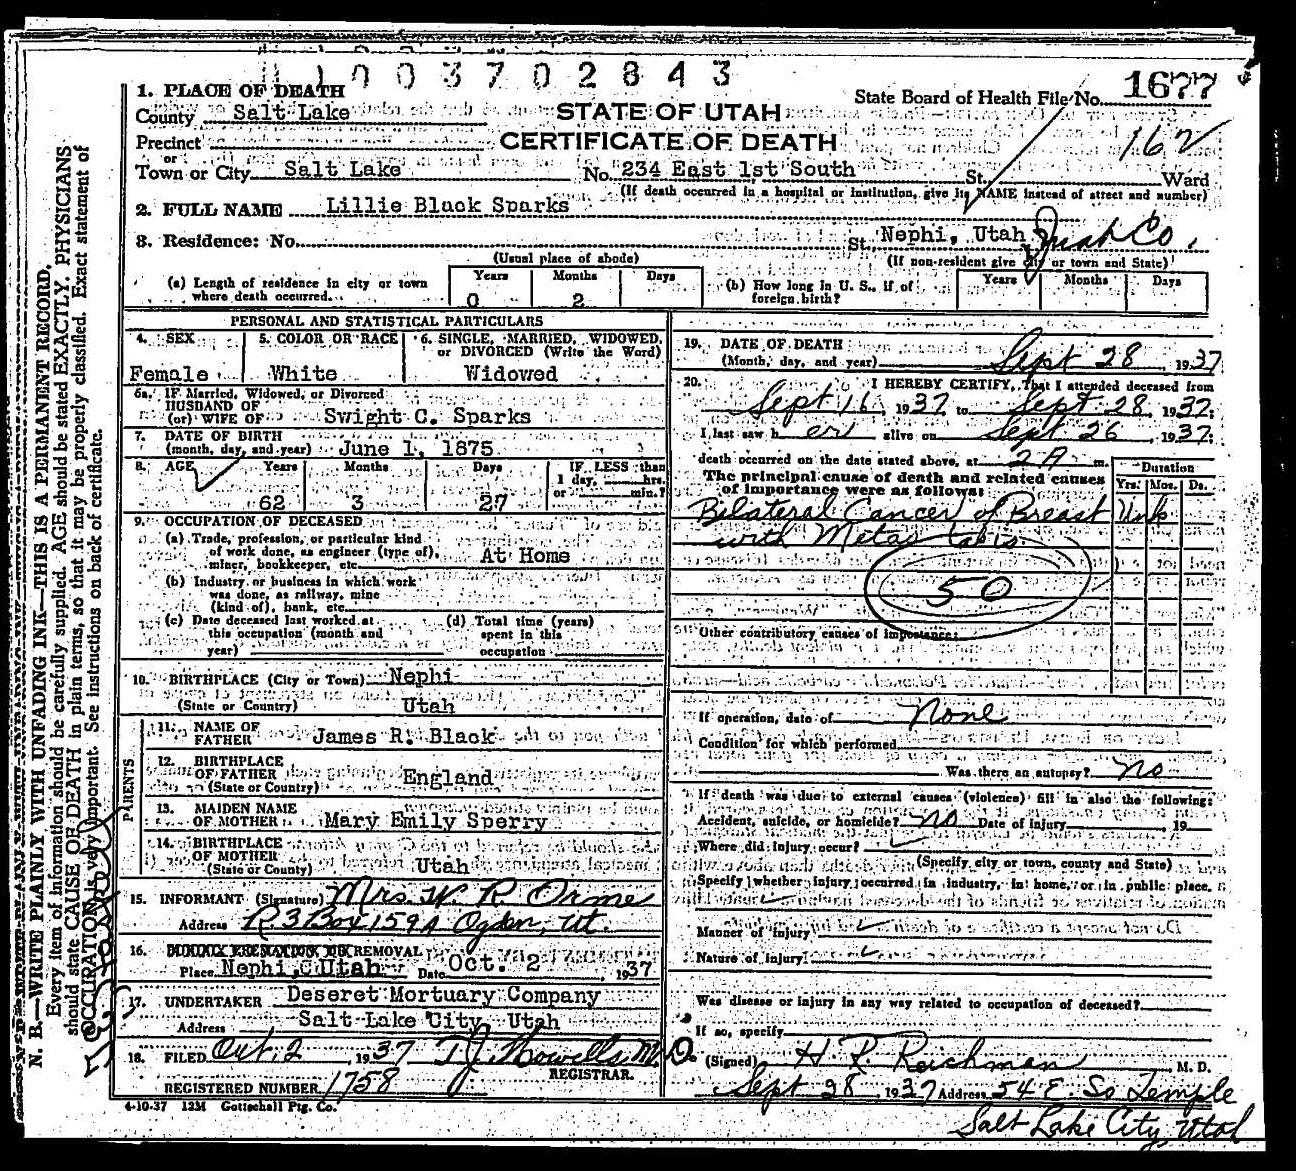 1003702843
1. PLACE OF DEATH
County Salt Lake
STATE OF UTAH
State Board of Health File No. 1677
Precinct
CERTIFICATE OF DEATH
162
or
Town or City Salt Lake No. 234 East 1st South St. Ward
(If death occurred in a hospital or institution, give its NAME instead of street and number)
2. FULL NAME Lillie Black Sparks
3. Residence: No. St., Nephi, Utah Juab Co.
(Usual place of abode) (If non-resident give city or town and State)
(a) Length of residence in city or town where death occurred. Years 0 Months 2 Days
(b) How long in U. S., if of foreign birth? Years Months Days
PERSONAL AND STATISTICAL PARTICULARS
4. SEX 5. COLOR OR RACE 6. SINGLE, MARRIED, WIDOWED, or DIVORCED (Write the Word)
Female White Widowed
6a. IF Married, Widowed, or Divorced
HUSBAND OF
(or) WIFE OF Swight C. Sparks
7. DATE OF BIRTH
(month, day, and year) June 1, 1875
8. AGE Years Months Days IF LESS than
1 day, hrs.
or min.?
62 3 27
9. OCCUPATION OF DECEASED
(a) Trade, profession, or particular kind
of work done, as engineer (type of), At Home
miner, bookkeeper, etc.
(b) Industry or business in which work
was done, as railway, mine
(kind of), bank, etc.
(c) Date deceased last worked at
this occupation (month and
year)
(d) Total time (years)
spent in this
occupation
10. BIRTHPLACE (City or Town) Nephi
(State or Country) Utah
PARENTS
11. NAME OF
FATHER James R. Black
12. BIRTHPLACE
OF FATHER England
(State or Country)
13. MAIDEN NAME
OF MOTHER Mary Emily Sperry
14. BIRTHPLACE
OF MOTHER
(State or County) Utah
15. INFORMANT (Signature) Mrs. W. R. Orme
Address R. 3 Box 159A Ogden, Ut.
16. REMOVAL
Place Nephi, Utah Date Oct. 2 1937
17. UNDERTAKER Deseret Mortuary Company
Address Salt Lake City, Utah
18. FILED Oct. 2, 1937 T. J. Howells M. D.
REGISTRAR.
REGISTERED NUMBER 1758
4-10-37 12M Gottschall Ptg. Co.
19. DATE OF DEATH
(Month, day, and year) Sept 28 1937
20. I HEREBY CERTIFY, That I attended deceased from
Sept 16, 1937, to Sept 28, 1937;
I last saw her alive on Sept 26, 1937;
death occurred on the date stated above, at 2 A m.
The principal cause of death and related causes
of importance were as follows:
Duration
Yrs. Mos. Ds.
Bilateral Cancer of Breast Unk
with Metastasis
50
Other contributory causes of importance:
If operation, date of None
Condition for which performed
Was there an autopsy? No
If death was due to external causes (violence) fill in also the following:
Accident, suicide, or homicide? No Date of Injury 19
Where did injury occur?
(Specify city or town, county and State)
Specify whether injury occurred in industry, in home, or in public place.
Manner of injury
Nature of injury
Was disease or injury in any way related to occupation of deceased?
If so, specify
(Signed) H. R. Reichman M. D.
Sept 28, 1937 Address 54 E. So Temple
Salt Lake City, Utah
N. B.—WRITE PLAINLY WITH UNFADING INK—THIS IS A PERMANENT RECORD.
Every item of information should be carefully supplied. AGE should be stated EXACTLY. PHYSICIANS
should state CAUSE OF DEATH in plain terms, so that it may be properly classified. Exact statement of
OCCUPATION is very important. See instructions on back of certificate.